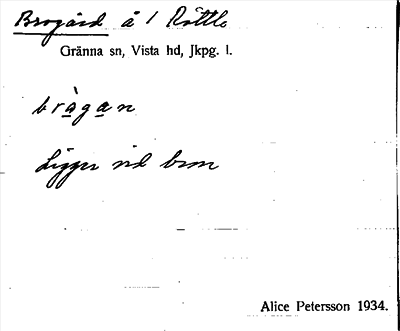 Brogård å 1 Röttle
Gränna sn, Vista hd, Jkpg. l.
bràgan
Ligger vid bron
Alice Petersson 1934.